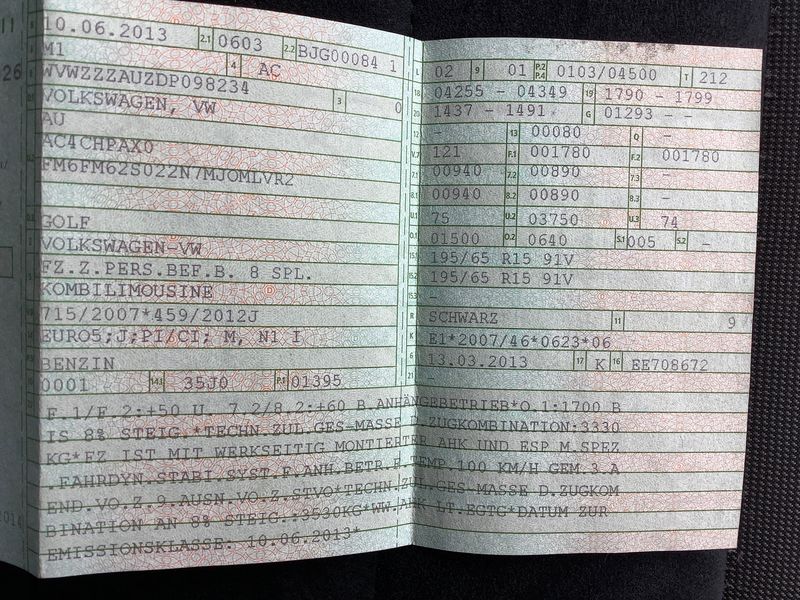 10.06.2013 2.1 0603 2.2 BJG00084 1
M1 4 AC
WVWZZZAUZDP098234
VOLKSWAGEN, VW 3 0
AU
AC4CHPAX0
FM6FM62S022N7MJOMLVR2
GOLF
VOLKSWAGEN-VW
FZ.Z.PERS.BEF.B. 8 SPL.
KOMBILIMOUSINE
715/2007*459/2012J
EURO5;J;PI/CI; M, N1 I
BENZIN
0001 14.1 35J0 P.1 01395
L 02 9 01 P.2 P.4 0103/04500 T 212
18 04255 - 04349 19 1790 - 1799
20 1437 - 1491 G 01293 - -
12 - 13 00080 Q -
V.7 121 F.1 001780 F.2 001780
7.1 00940 7.2 00890 7.3 -
8.1 00940 8.2 00890 8.3 -
U.1 75 U.2 03750 U.3 74
O.1 01500 O.2 0640 S.1 005 S.2 -
15.1 195/65 R15 91V
15.2 195/65 R15 91V
15.3 -
R SCHWARZ 11 9
K E1*2007/46*0623*06
6 13.03.2013 17 K 16 EE708672
21
F.1/F.2:+50 U. 7.2/8.2:+60 B.ANHÄNGEBETRIEB*O.1:1700 B
IS 8% STEIG.*TECHN.ZUL.GES-MASSE D.ZUGKOMBINATION:3330
KG*FZ IST MIT WERKSEITIG MONTIERTER AHK UND ESP M.SPEZ
.FAHRDYN.STABI.SYST.F.ANH.BETR.F.TEMP.100 KM/H GEM.3.A
END.VO.Z.9.AUSN.VO.Z.STVO*TECHN.ZUL.GES.MASSE D.ZUGKOM
BINATION AN 8% STEIG.:3530KG*WW.AHK LT.EGTG*DATUM ZUR
EMISSIONSKLASSE: 10.06.2013*